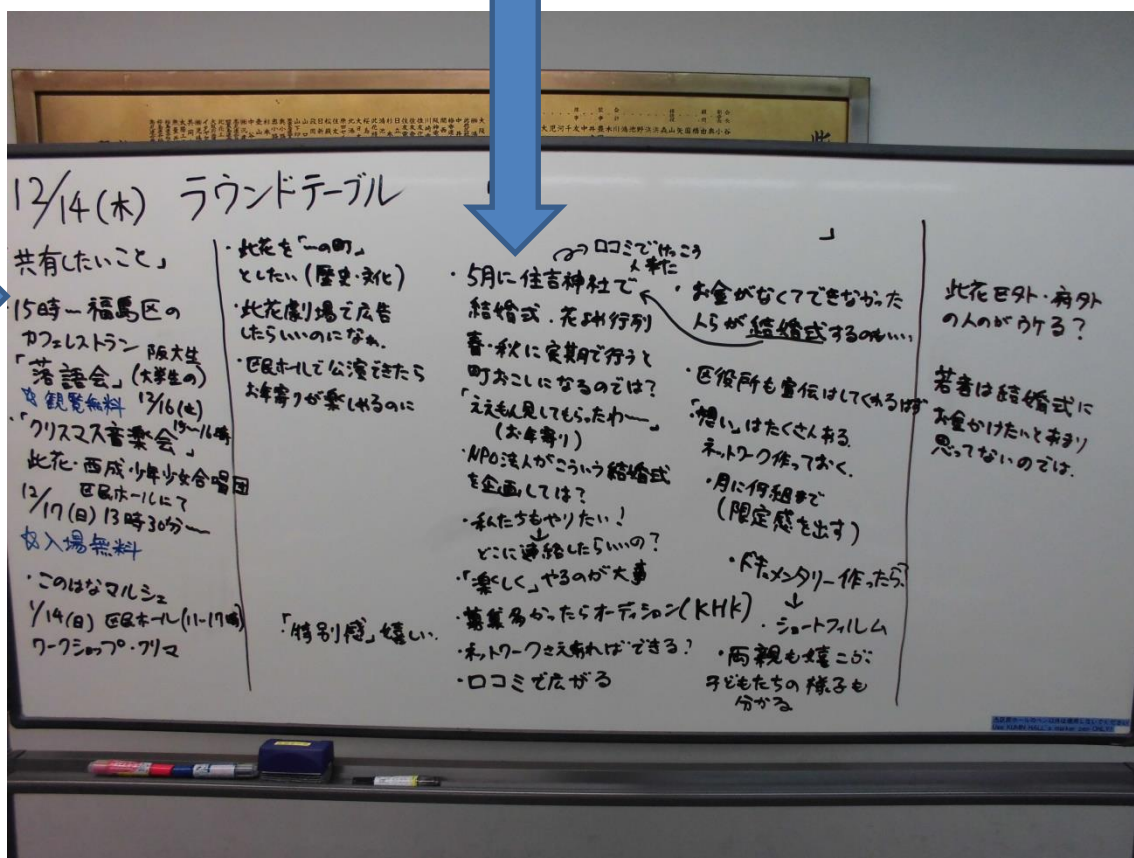 12/14(木) ラウンドテーブル
共有したいこと」
15時〜福島区の
カフェレストラン 阪大生
「落語会」(大学生の)
☆観覧無料 12/16(土)
・「クリスマス音楽会」15〜16時
此花・西成少年少女合唱団
12/17(日) 区民ホールにて
13時30分〜
☆入場無料
・このはなマルシェ
1/14(日) 区民ホール(11-17時)
ワークショップ・フリマ
・此花を「〜の町」
としたい(歴史・文化)
・此花劇場で広告
したらいいのになぁ。
・区民ホールで公演できたら
お年寄りが楽しめるのに
「特別感」嬉しい。
口コミでけっこう
人来た
・5月に住吉神社で
結婚式、花よめ行列
春・秋に定期で行うと
町おこしになるのでは?
「ええもん見してもらったわ〜」
(お年寄り)
・NPO法人がこういう結婚式
を企画しては?
・私たちもやりたい!
↓
どこに連絡したらいいの?
・「楽しく」やるのが大事
・募集多かったらオーディション(KHK)
・ネットワークさえあればできる?
・口コミで広がる
」
・お金がなくてできなかった
人らが結婚式するのもいい…
・区役所も宣伝はしてくれるはず
「想い」はたくさんある。
ネットワーク作っておく。
・月に何組まで
(限定感を出す)
・ドキュメンタリー作ったら?
↓
・ショートフィルム
・両親も喜こぶ
子どもたちの様子も
分かる
此花区外・府外
の人のがウケる?
若者は結婚式に
お金かけたいとあまり
思ってないのでは。